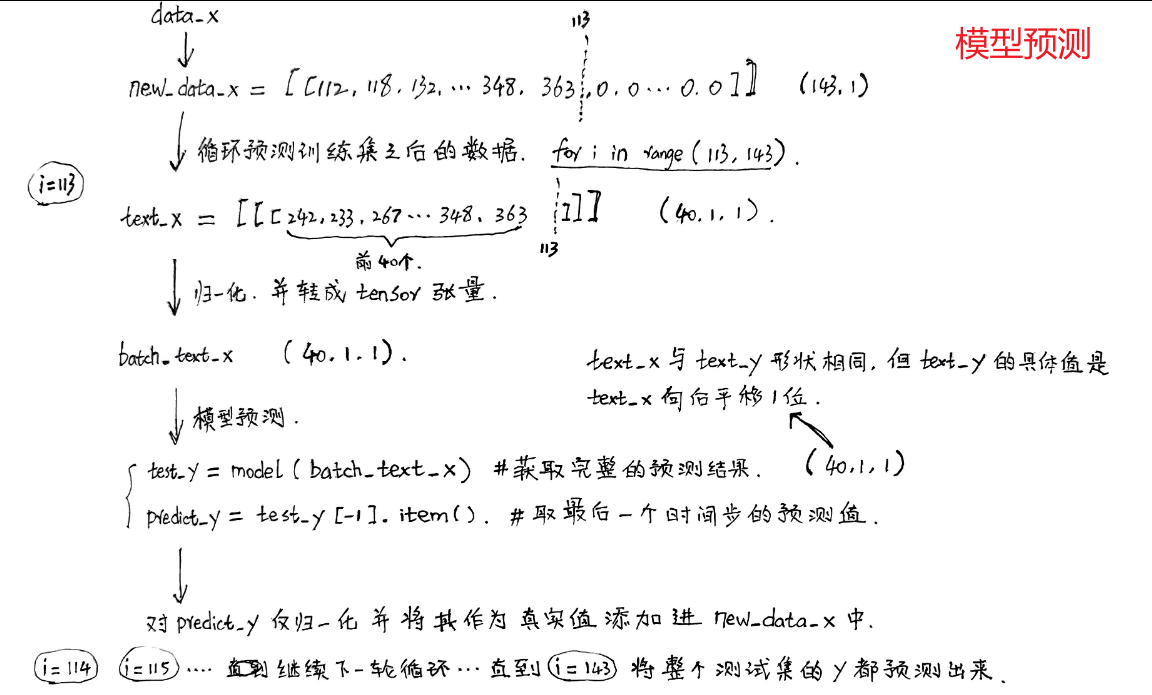 data_x
模型预测
113
new_data_x = [[112, 118, 132, … 348, 363, 0, 0 … 0, 0]] (143, 1)
循环预测训练集之后的数据. for i in range (113, 143).
i=113
text_x = [[[242, 233, 267 … 348, 363 ]]] (40, 1, 1).
113
前40个.
归一化. 并转成 tensor 张量.
batch_text_x (40, 1, 1).
text_x 与 text_y 形状相同, 但 text_y 的具体值是
text_x 向后平移1位.
模型预测.
test_y = model (batch_text_x) #获取完整的预测结果. (40, 1, 1)
predict_y = test_y [-1]. item(). #取最后一个时间步的预测值.
对 predict_y 反归一化 并将其作为真实值添加进 new_data_x 中.
i=114 i=115 …. 继续下一轮循环 … 直到 i=143 将整个测试集的 y 都预测出来.